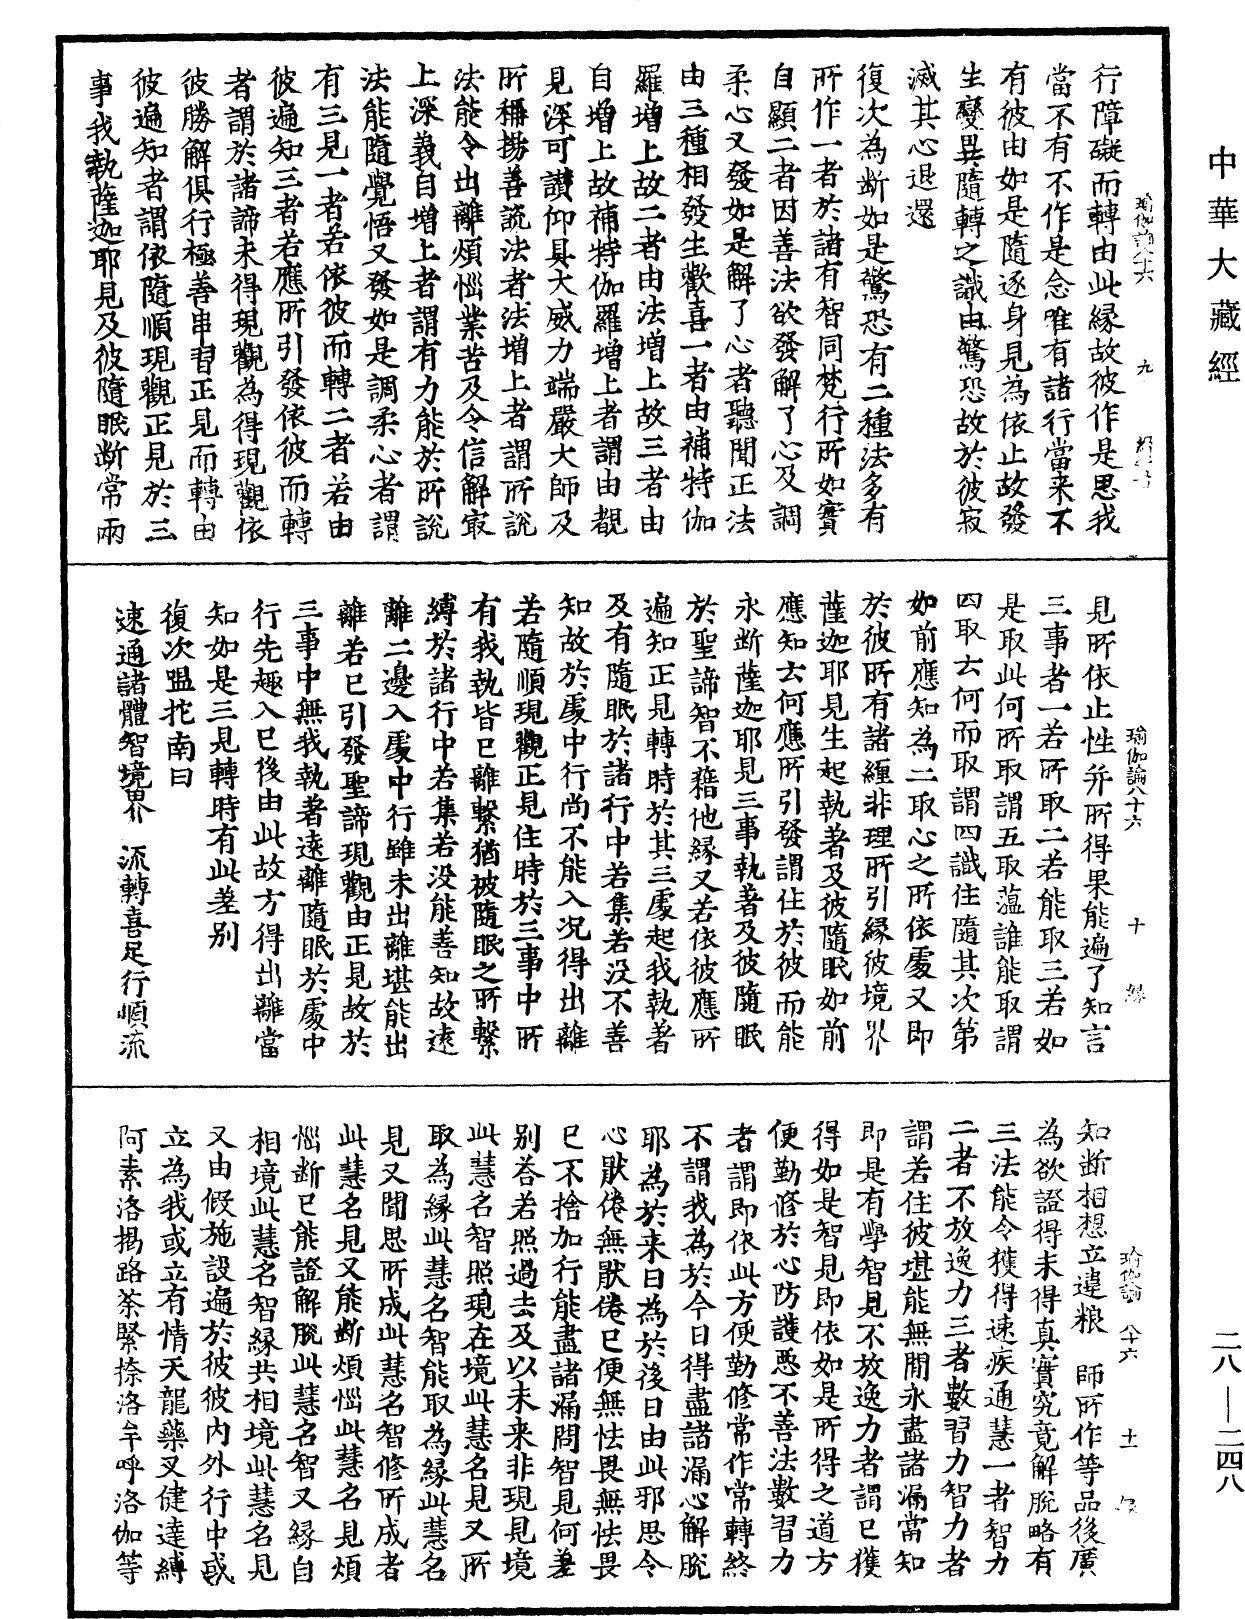 中華大藏經
瑜伽論八十六 九
行障礙而轉由此緣故彼作是思我
當不有不作是念唯有諸行當来不
有彼由如是隨逐身見為依止故發
生變異隨轉之識由驚恐故於彼寂
滅其心退還
復次為断如是驚恐有二種法多有
所作一者於諸有智同梵行所如實
自顯二者因善法欲發解了心及調
柔心又發如是解了心者聽聞正法
由三種相發生歡喜一者由補特伽
羅增上故二者由法增上故三者由
自增上故補特伽羅增上者謂由覩
見深可讃仰具大威力端嚴大師及
所稱揚善説法者法增上者謂所説
法能令出離煩惱業苦及令信解㝡
上深義自增上者謂有力能於所説
法能隨覺悟又發如是調柔心者謂
有三見一者若依彼而轉二者若由
彼遍知三者若應所引發依彼而轉
者謂於諸諦未得現觀為得現觀依
彼勝解俱行極善串習正見而轉由
彼遍知者謂依隨順現觀正見於三
事我執薩迦耶見及彼隨眠断常兩
瑜伽論八十六 十 緣
見所依止性并所得果能遍了知言
三事者一若所取二若能取三若如
是取此何所取謂五取蕴誰能取謂
四取云何而取謂四識住隨其次第
如前應知為二取心之所依處又即
於彼所有諸纏非理所引緣彼境界
薩迦耶見生起執著及彼隨眠如前
應知云何應所引發謂住於彼而能
永断薩迦耶見三事執著及彼隨眠
於聖諦智不藉他緣又若依彼應所
遍知正見轉時於其三處起我執著
及有隨眠於諸行中若集若没不善
知故於處中行尚不能入况得出離
若隨順現觀正見住時於三事中所
有我執皆已離繫猶被隨眠之所繫
縛於諸行中若集若没能善知故遠
離二邊入處中行雖未出離堪能出
離若已引發聖諦現觀由正見故於
三事中無我執著遠離隨眠於處中
行先趣入已後由此故方得出離當
知如是三見轉時有此差别
復次嗢拕南曰
速通諸體智境界 流轉喜足行順流
瑜伽論 八十六 十一
知断相想立違粮 師所作等品後廣
為欲證得未得真實究竟解脫略有
三法能令獲得速疾通慧一者智力
二者不放逸力三者數習力智力者
謂若住彼堪能無閒永盡諸漏當知
即是有學智見不放逸力者謂已獲
得如是智見即依如是所得之道方
便勤修於心防護惡不善法數習力
者謂即依此方便勤修常作常轉終
不謂我為於今日得盡諸漏心解脫
耶為於来日為於後日由此邪思令
心猒倦無猒倦已便無怯畏無怯畏
已不捨加行能盡諸漏問智見何差
别荅若照過去及以未来非現見境
此慧名智照現在境此慧名見又所
取為緣此慧名智能取為緣此慧名
見又聞思所成此慧名智修所成者
此慧名見又能断煩惱此慧名見煩
惱断已能證解脫此慧名智又緣自
相境此慧名智緣共相境此慧名見
又由假施設遍於彼彼内外行中或
立為我或立有情天龍藥叉健達縛
阿素洛揭路荼緊捺洛牟呼洛伽等
二八—二四八